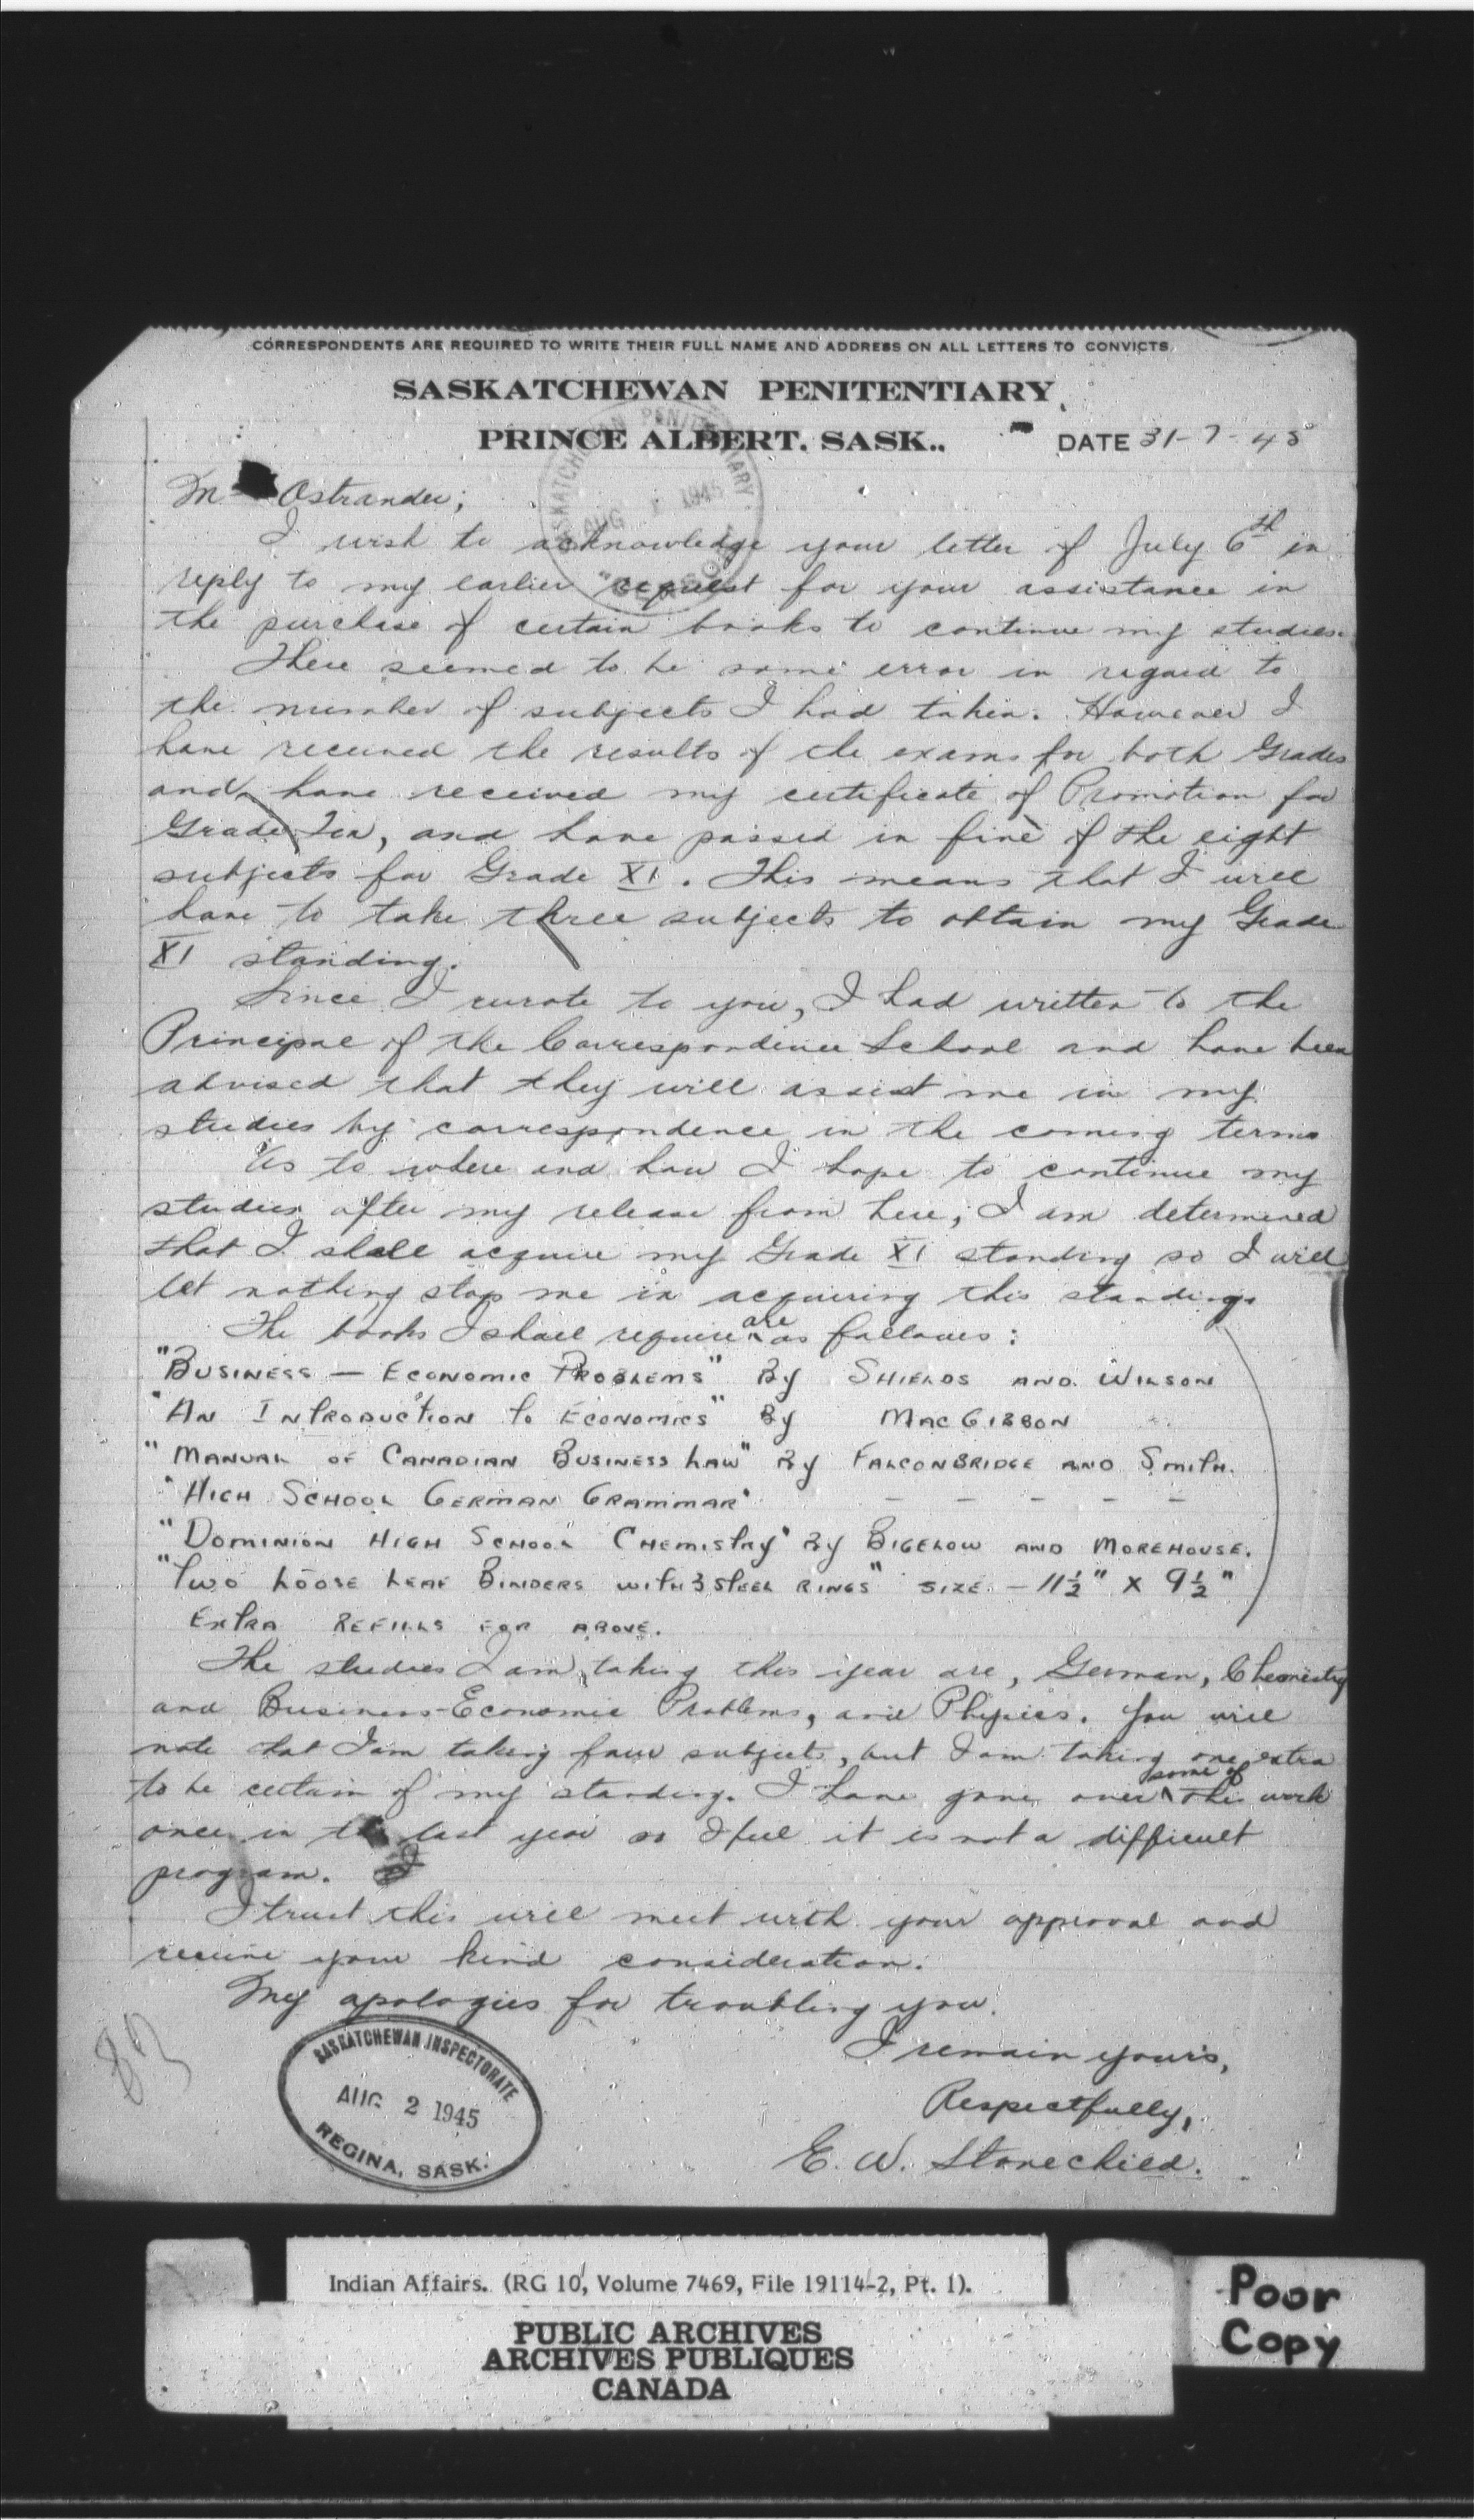 CORRESPONDENTS ARE REQUIRED TO WRITE THEIR FULL NAME AND ADDRESS ON ALL LETTERS TO CONVICTS
SASKATCHEWAN PENITENTIARY
PRINCE ALBERT, SASK.,
DATE 31-7-45
SASKATCHEWAN PENITENTIARY
AUG 1945
CENSOR
M Ostrander;
I wish to acknowledge your letter of July 6th in
reply to my earlier request for your assistance in
the purchase of certain books to continue my studies.
There seemed to be some error in regard to
the number of subjects I had taken. However I
have received the results of the exams for both Grades
and have received my certificate of Promotion for
Grade Ten, and have passed in five of the eight
subjects for Grade XI. This means that I will
have to take three subjects to obtain my Grade
XI standing.
Since I wrote to you, I had written to the
Principal of the Correspondence School and have been
advised that they will assist me in my
studies by correspondence in the coming term.
As to where and how I hope to continue my
studies after my release from here, I am determined
that I shall acquire my Grade XI standing so I will
let nothing stop me in acquiring this standing.
The books I shall require are as follows:
"BUSINESS — ECONOMIC PROBLEMS" By SHIELDS AND WILSON
"AN INTRODUCTION To ECONOMICS" By MACGIBBON
"MANUAL OF CANADIAN BUSINESS LAW" By FALCONBRIDGE AND SMITH.
"HIGH SCHOOL GERMAN GRAMMAR" - - - - -
"DOMINION HIGH SCHOOL CHEMISTRY" By BIGELOW AND MOREHOUSE.
"TWO LOOSE LEAF BINDERS WITH 3 STEEL RINGS" SIZE - 11½" X 9½"
EXTRA REFILLS FOR ABOVE.
The studies I am taking this year are, German, Chemistry
and Business-Economic Problems, and Physics. You will
note that I am taking four subjects, but I am taking one extra
to be certain of my standing. I have gone over some of this work
once in the last year so I feel it is not a difficult
program.
I trust this will meet with your approval and
receive your kind consideration.
My apologies for troubling you.
I remain yours,
Respectfully,
E. W. Stonechild.
83
SASKATCHEWAN INSPECTORATE
AUG 2 1945
REGINA, SASK.
Indian Affairs. (RG 10, Volume 7469, File 19114-2, Pt. 1).
PUBLIC ARCHIVES
ARCHIVES PUBLIQUES
CANADA
Poor
Copy